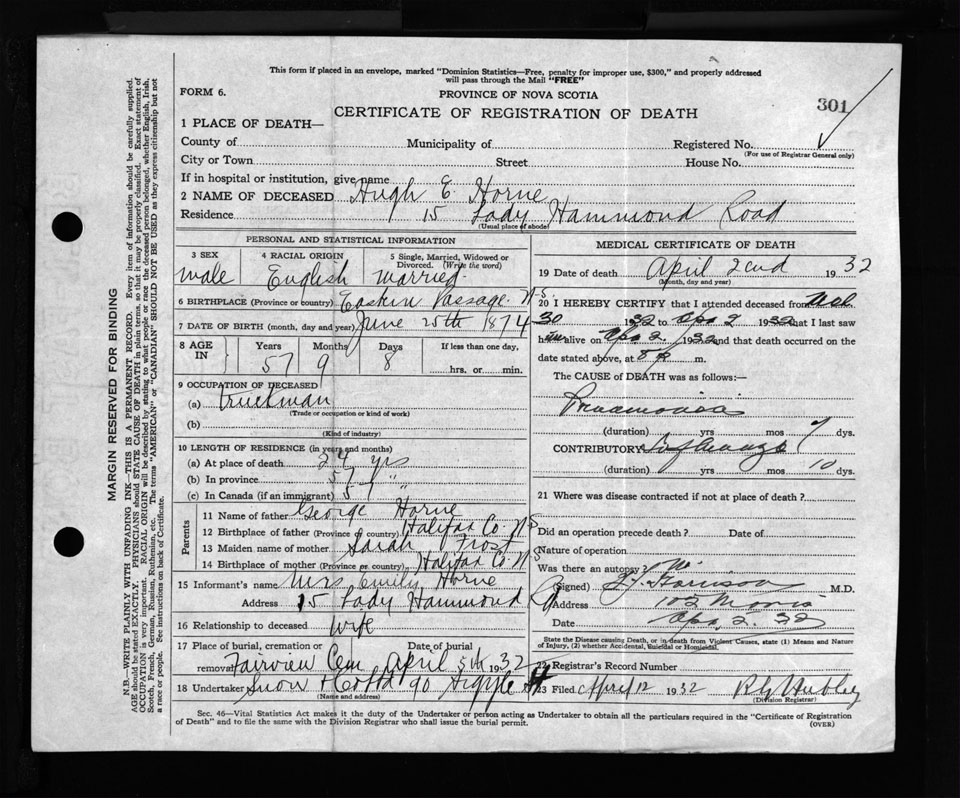 This form if placed in an envelope, marked "Dominion Statistics—Free, penalty for improper use, $300," and properly addressed
will pass through the Mail "FREE"
FORM 6.
PROVINCE OF NOVA SCOTIA
301
CERTIFICATE OF REGISTRATION OF DEATH
1 PLACE OF DEATH—
County of Municipality of Registered No.
(For use of Registrar General only)
City or Town Street House No.
If in hospital or institution, give name
2 NAME OF DECEASED Hugh E. Horne
Residence 15 Lady Hammond Road
(Usual place of abode)
PERSONAL AND STATISTICAL INFORMATION
3 SEX 4 RACIAL ORIGIN 5 Single, Married, Widowed or
Divorced. (Write the word)
male English married.
6 BIRTHPLACE (Province or country) Eastern Passage N.S.
7 DATE OF BIRTH (month, day and year) June 25th 1874
8 AGE IN Years Months Days If less than one day,
57 9 8 hrs. or min.
9 OCCUPATION OF DECEASED
(a) truckman
(Trade or occupation or kind of work)
(b)
(Kind of industry)
10 LENGTH OF RESIDENCE (in years and months)
(a) At place of death 24 yrs
(b) In province 57 "
(c) In Canada (if an immigrant) 57 "
Parents
11 Name of father George Horne
12 Birthplace of father (Province or country) Halifax Co. N.S
13 Maiden name of mother Sarah Frost
14 Birthplace of mother (Province or country) Halifax Co. N.S
15 Informant's name Mrs Emily Horne
Address 15 Lady Hammond Rd
16 Relationship to deceased wife
17 Place of burial, cremation or
removal Fairview Cem April 5th 1932
18 Undertaker Snow 90 Argyle
(Name and address)
MEDICAL CERTIFICATE OF DEATH
19 Date of death April 2end 1932
(Month, day and year)
20 I HEREBY CERTIFY that I attended deceased from
30 1932 to Apr 2 1932 that I last saw
him alive on Apr 2. 1932 and that death occurred on the
date stated above, at 8 p m.
The CAUSE OF DEATH was as follows:—
Pneumonia
(duration) yrs mos 7 dys.
CONTRIBUTORY Influenza
(duration) yrs mos 10 dys.
21 Where was disease contracted if not at place of death?
Did an operation precede death? Date of
Nature of operation
Was there an autopsy? No
(Signed) M.D.
Address 102 Morris
Date Apr. 2. 32
State the Disease causing Death, or in death from Violent Causes, state (1) Means and Nature
of Injury, (2) whether Accidental, Suicidal or Homicidal.
22 Registrar's Record Number
23 Filed April 12 1932
(Division Registrar)
Sec. 46—Vital Statistics Act makes it the duty of the Undertaker or person acting as Undertaker to obtain all the particulars required in the "Certificate of Registration
of Death" and to file the same with the Division Registrar who shall issue the burial permit.
(OVER)
MARGIN RESERVED FOR BINDING
N.B.—WRITE PLAINLY WITH UNFADING INK—THIS IS A PERMANENT RECORD. Every item of information should be carefully supplied.
AGE should be stated EXACTLY. PHYSICIANS should STATE CAUSE OF DEATH in plain terms, so that it may be properly classified. Exact statement of
OCCUPATION is very important. RACIAL ORIGIN will be described by stating to what people or race the deceased person belonged, whether English, Irish,
Scotch, French, German, Russian, Ruthenian, etc. The terms "AMERICAN" or "CANADIAN" SHOULD NOT BE USED as they express citizenship but not
a race or people. See instructions on back of Certificate.